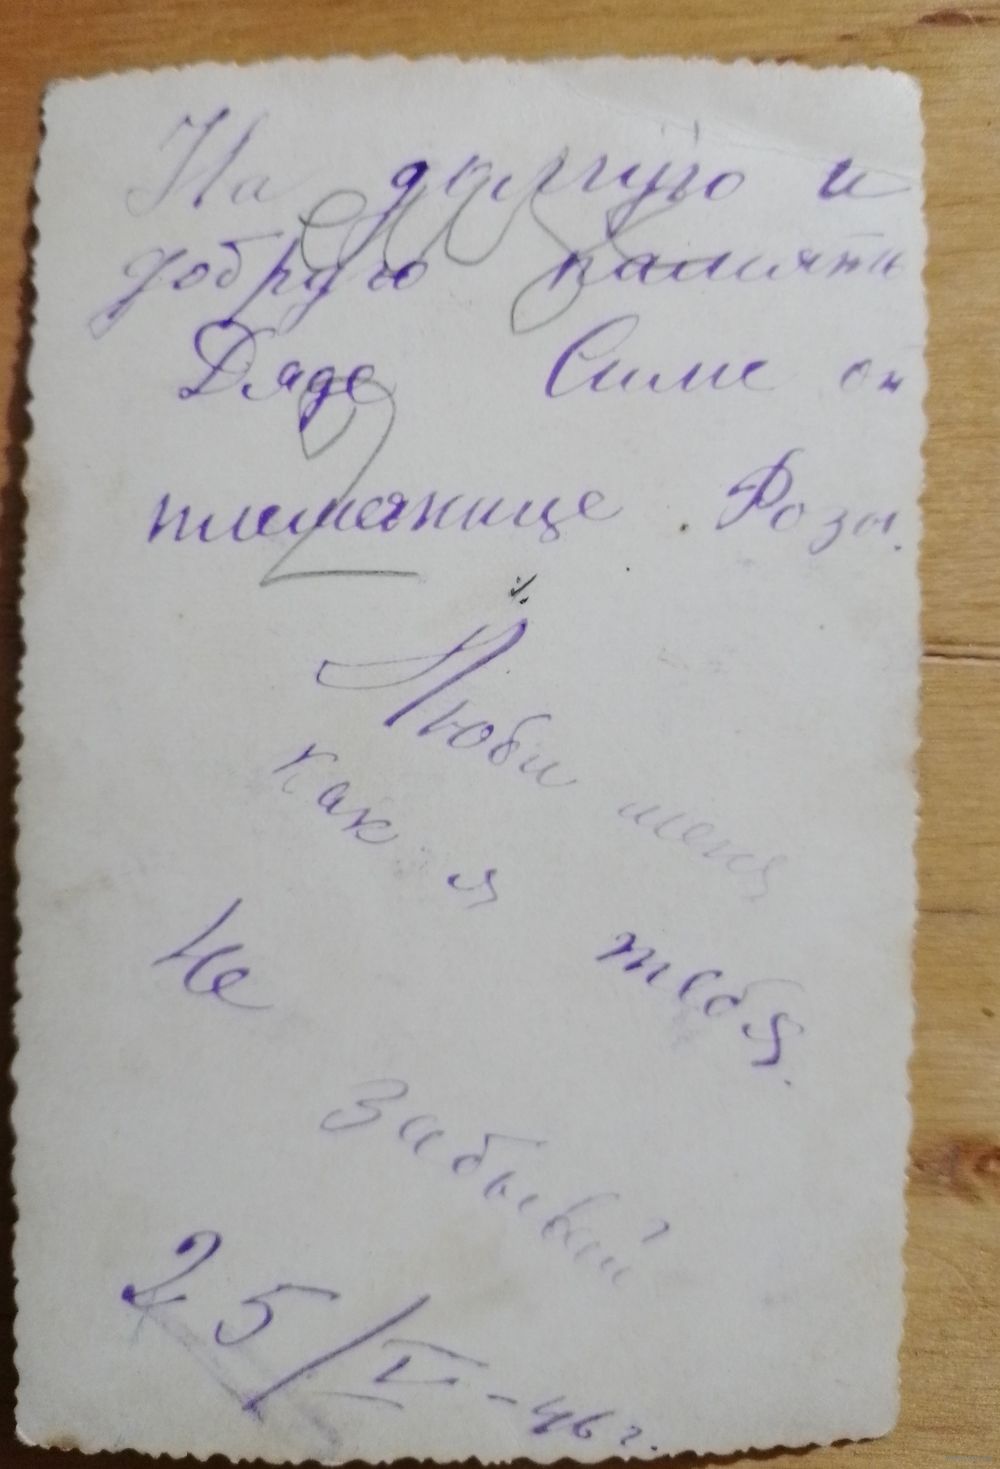 На долгую и
добрую память
Дяде Симе от
племянице Розы.
Люби меня
как я тебя.
Не забывай
25/V-46 г.